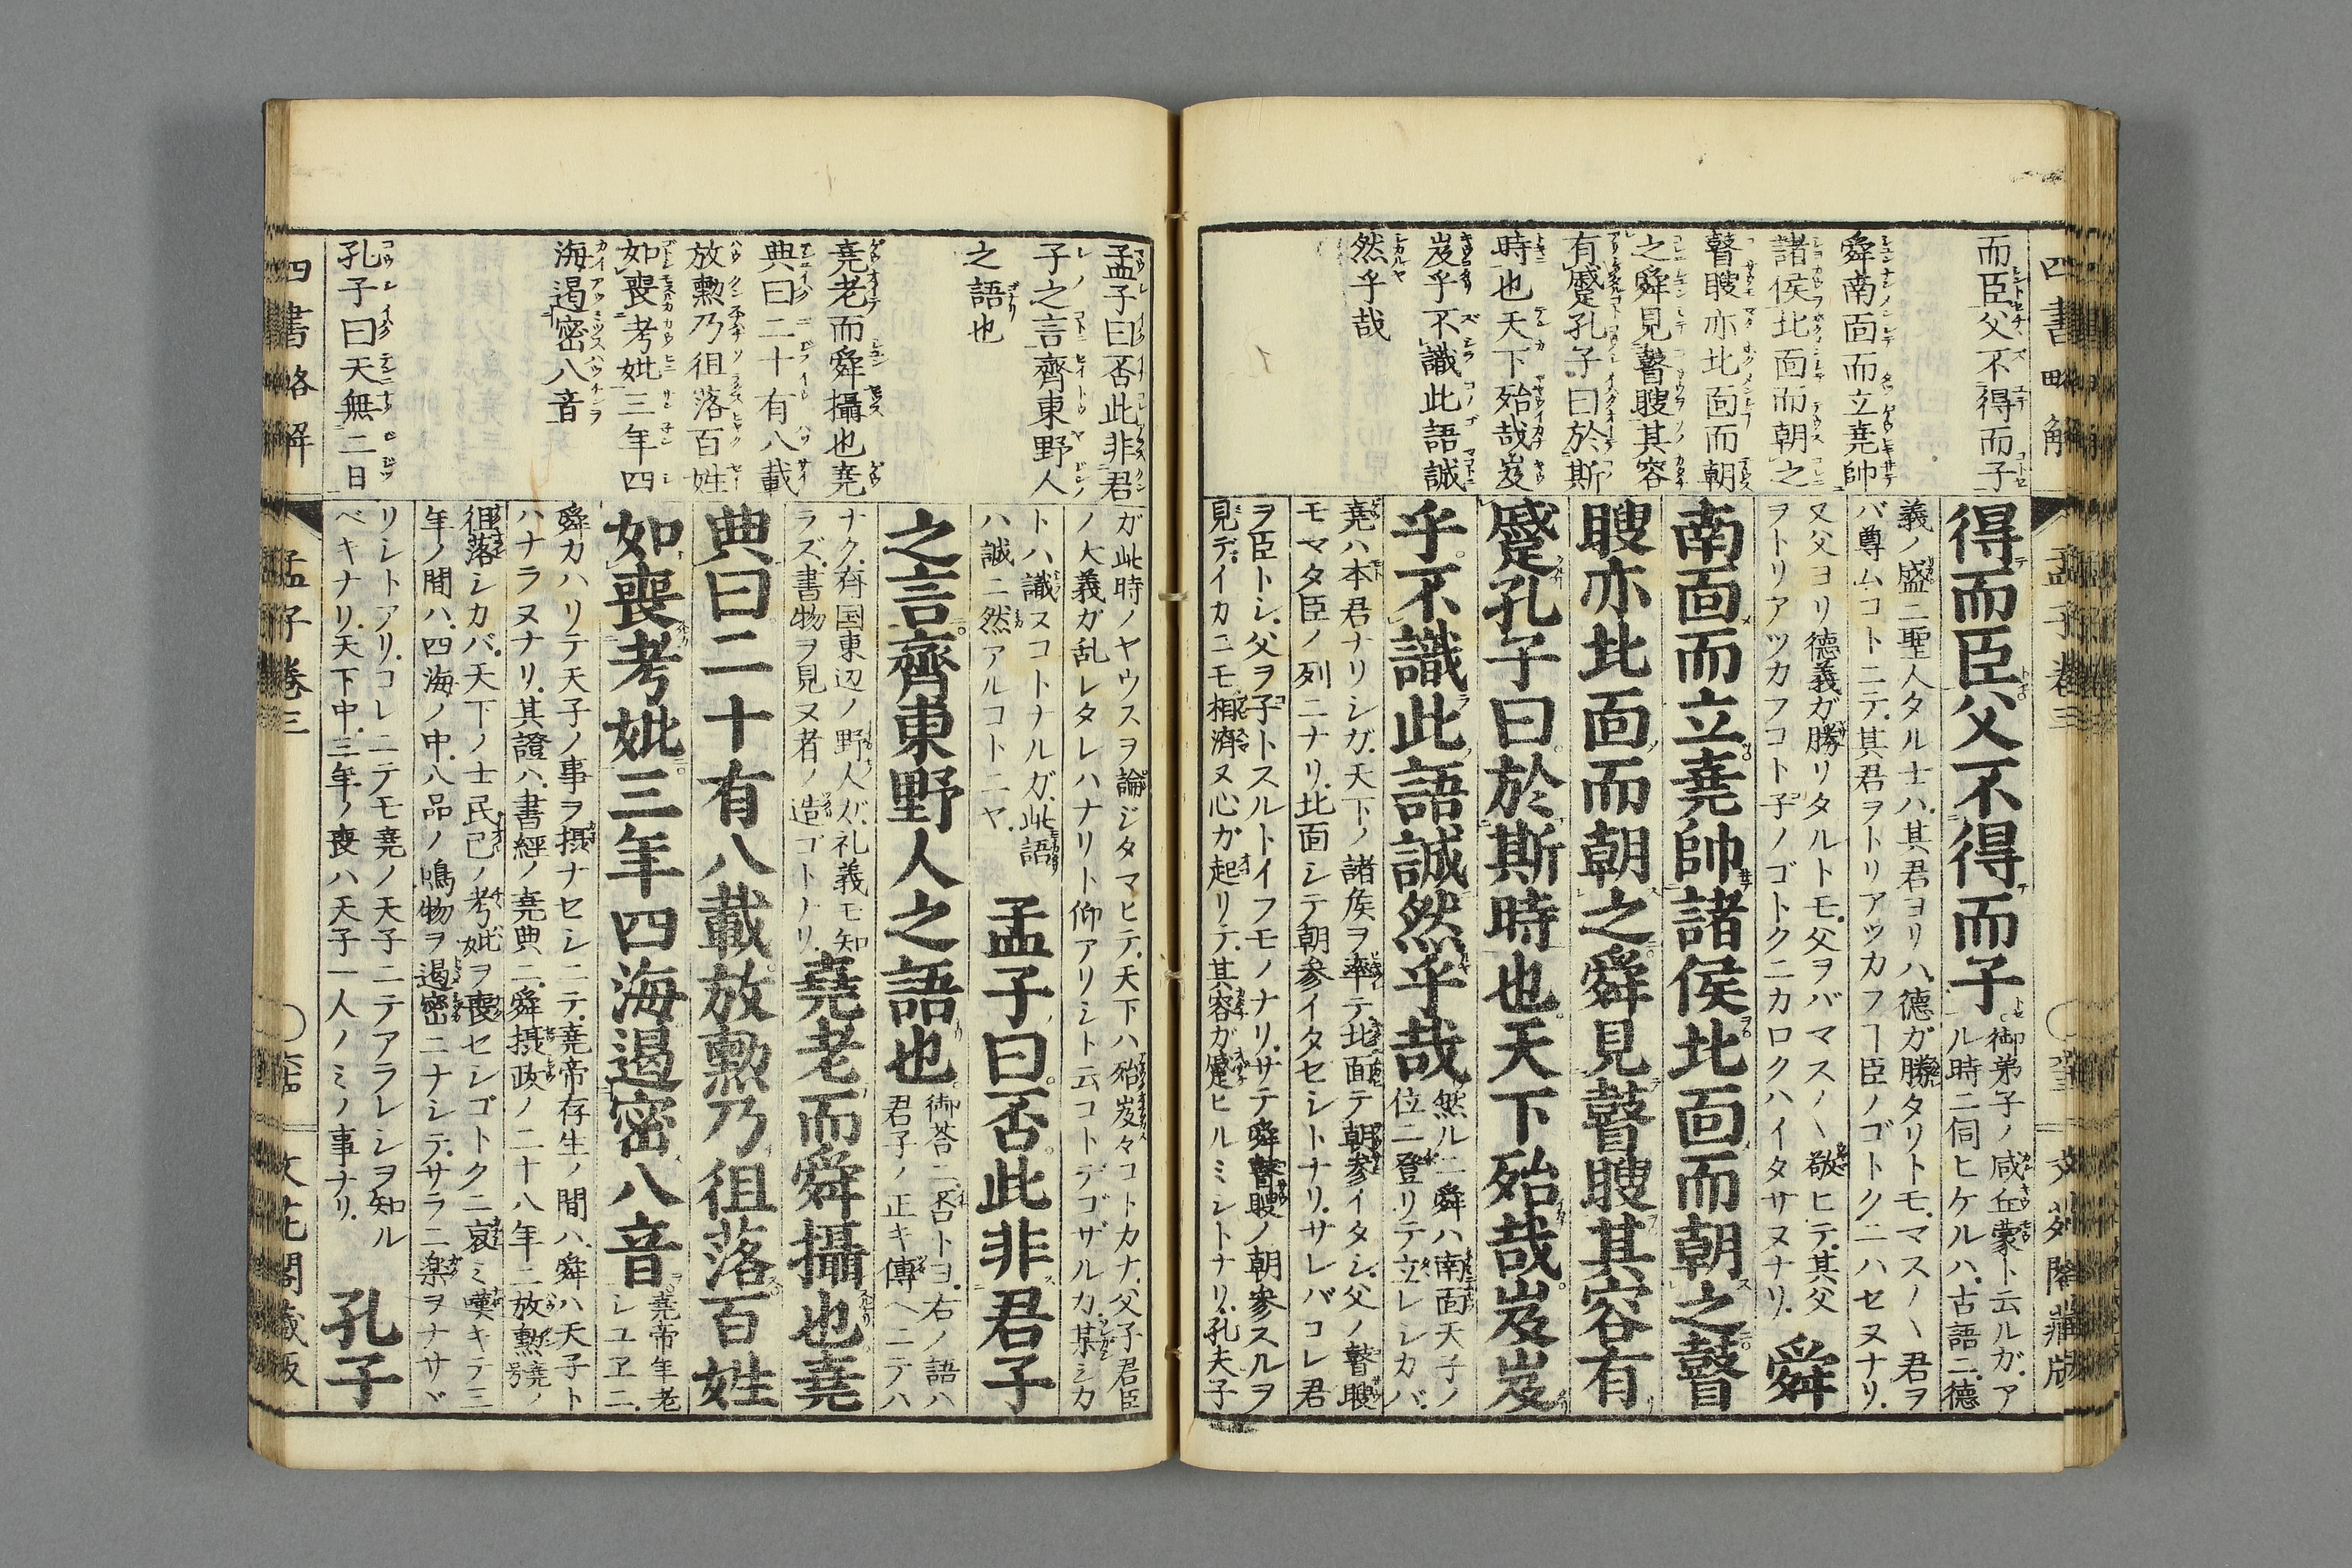 四書略解
孟子卷三
而臣父不得而子
舜南面而立堯帥
諸侯北面而朝之
瞽瞍亦北面而朝
之舜見瞽瞍其容
有蹙孔子曰於斯
時也天下殆哉岌
岌乎不識此語誠
然乎哉
得而臣父不得而子御弟子ノ咸丘蒙ト云ルガ、ア
ル時ニ伺ヒケルハ、古語ニ、德
義ノ盛ニ聖人タル士ハ、其君ヨリハ、德ガ勝タリトモ、マス〳〵君ヲ
バ尊ムコトニテ、其君ヲトリアツカフヿ臣ノゴトクニハセヌナリ、
又父ヨリ德義ガ勝リタルトモ、父ヲバマス〳〵敬ヒテ、其父
ヲトリアツカフコト子ノゴトクニカロクハイタサヌナリ、舜
南面而立堯帥諸侯北面而朝之瞽
瞍亦北面而朝之舜見瞽瞍其容有
蹙孔子曰於斯時也天下殆哉岌岌
乎不識此語誠然乎哉然ルニ舜ハ南面天子ノ
位ニ登リテ立レシカバ、
堯ハ本君ナリシガ、天下ノ諸矦ヲ率テ北面テ朝参イタシ、父ノ瞽瞍
モマタ臣ノ列ニナリ、北面シテ朝参イタセシトナリ、サレバコレ君
ヲ臣トシ、父ヲ子トスルトイフモノナリ、サテ舜瞽瞍ノ朝參スルヲ
見デ、イカニモ相濟ヌ心ガ起リテ、其容ガ蹙ヒルミシトナリ、孔夫子
孟子曰否此非君
子之言齊東野人
之語也
堯老而舜攝也堯
典曰二十有八載
放勲乃徂落百姓
如喪考妣三年四
海遏密八音
孔子曰天無二日
ガ此時ノヤウスヲ論ジタマヒテ、天下ハ殆岌々コトカナ、父子君臣
ノ大義ガ乱レタレハナリト仰アリシト云コトデゴザルカ、某シカ
トハ識スコトナルガ、此語
ハ誠ニ然アルコトニヤ、孟子曰否此非君子
之言齊東野人之語也御荅ニ、否トヨ、右ノ語ハ
君子ノ正キ傳ヘニテハ
ナク、斉国東辺ノ野人ガ、礼義モ知
ラズ、書物ヲ見ヌ者ノ造ゴトナリ、堯老而舜攝也堯
典曰二十有八載放勲乃徂落百姓
如喪考妣三年四海遏密八音堯帝年老
シユヱニ、
舜カハリテ天子ノ事ヲ摂ナセシニテ、堯帝存生ノ間ハ、舜ハ天子ト
ハナラヌナリ、其證ハ、書經ノ堯典ニ、舜摂政ノ二十八年ニ放勲堯ノ号
徂落シカバ、天下ノ士民己ノ考妣ヲ喪セシゴトクニ哀ミ嘆キテ三
年ノ間ハ、四海ノ中、八品ノ鳴物ヲ遏密ニナシテ、サラニ楽ヲナサヾ
リシトアリ、コレニテモ堯ノ天子ニテアラレシヲ知ル
ベキナリ、天下中、三年ノ喪ハ天子一人ノミノ事ナリ、孔子
四書略解
孟子卷三
文花閣藏版